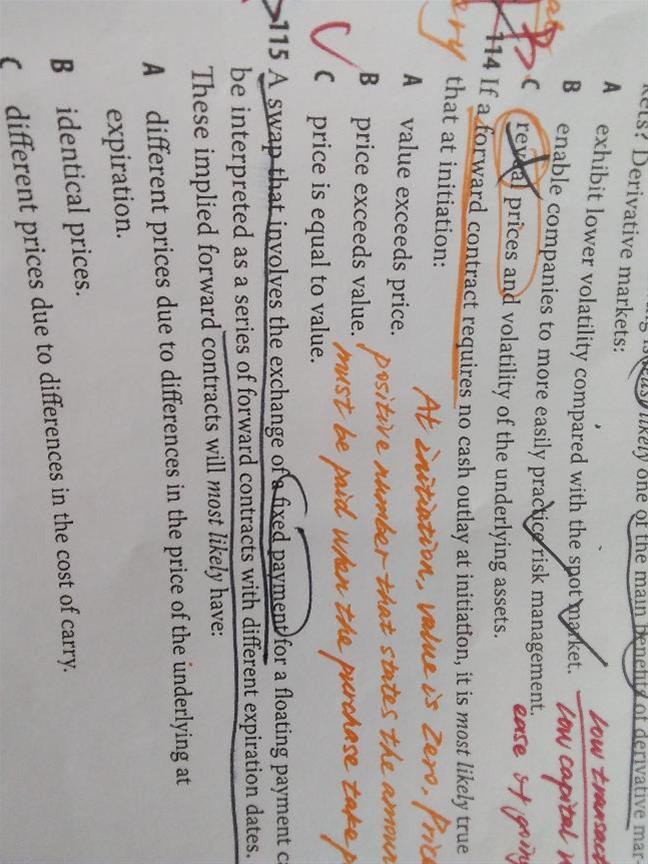 kets? Derivative markets:
likely one of the main benefits of derivative mar-
A exhibit lower volatility compared with the spot market.
B enable companies to more easily practice risk management.
C reveal prices and volatility of the underlying assets.
low
low capital
ease of
114 If a forward contract requires no cash outlay at initiation, it is most likely true
that at initiation:
A value exceeds price.
B price exceeds value.
C price is equal to value.
At initiation, value is zero, Price
positive number that states the amoun
must be paid when the purchase take p
115 A swap that involves the exchange of a fixed payment for a floating payment c
be interpreted as a series of forward contracts with different expiration dates.
These implied forward contracts will most likely have:
A different prices due to differences in the price of the underlying at
expiration.
B identical prices.
C different prices due to differences in the cost of carry.